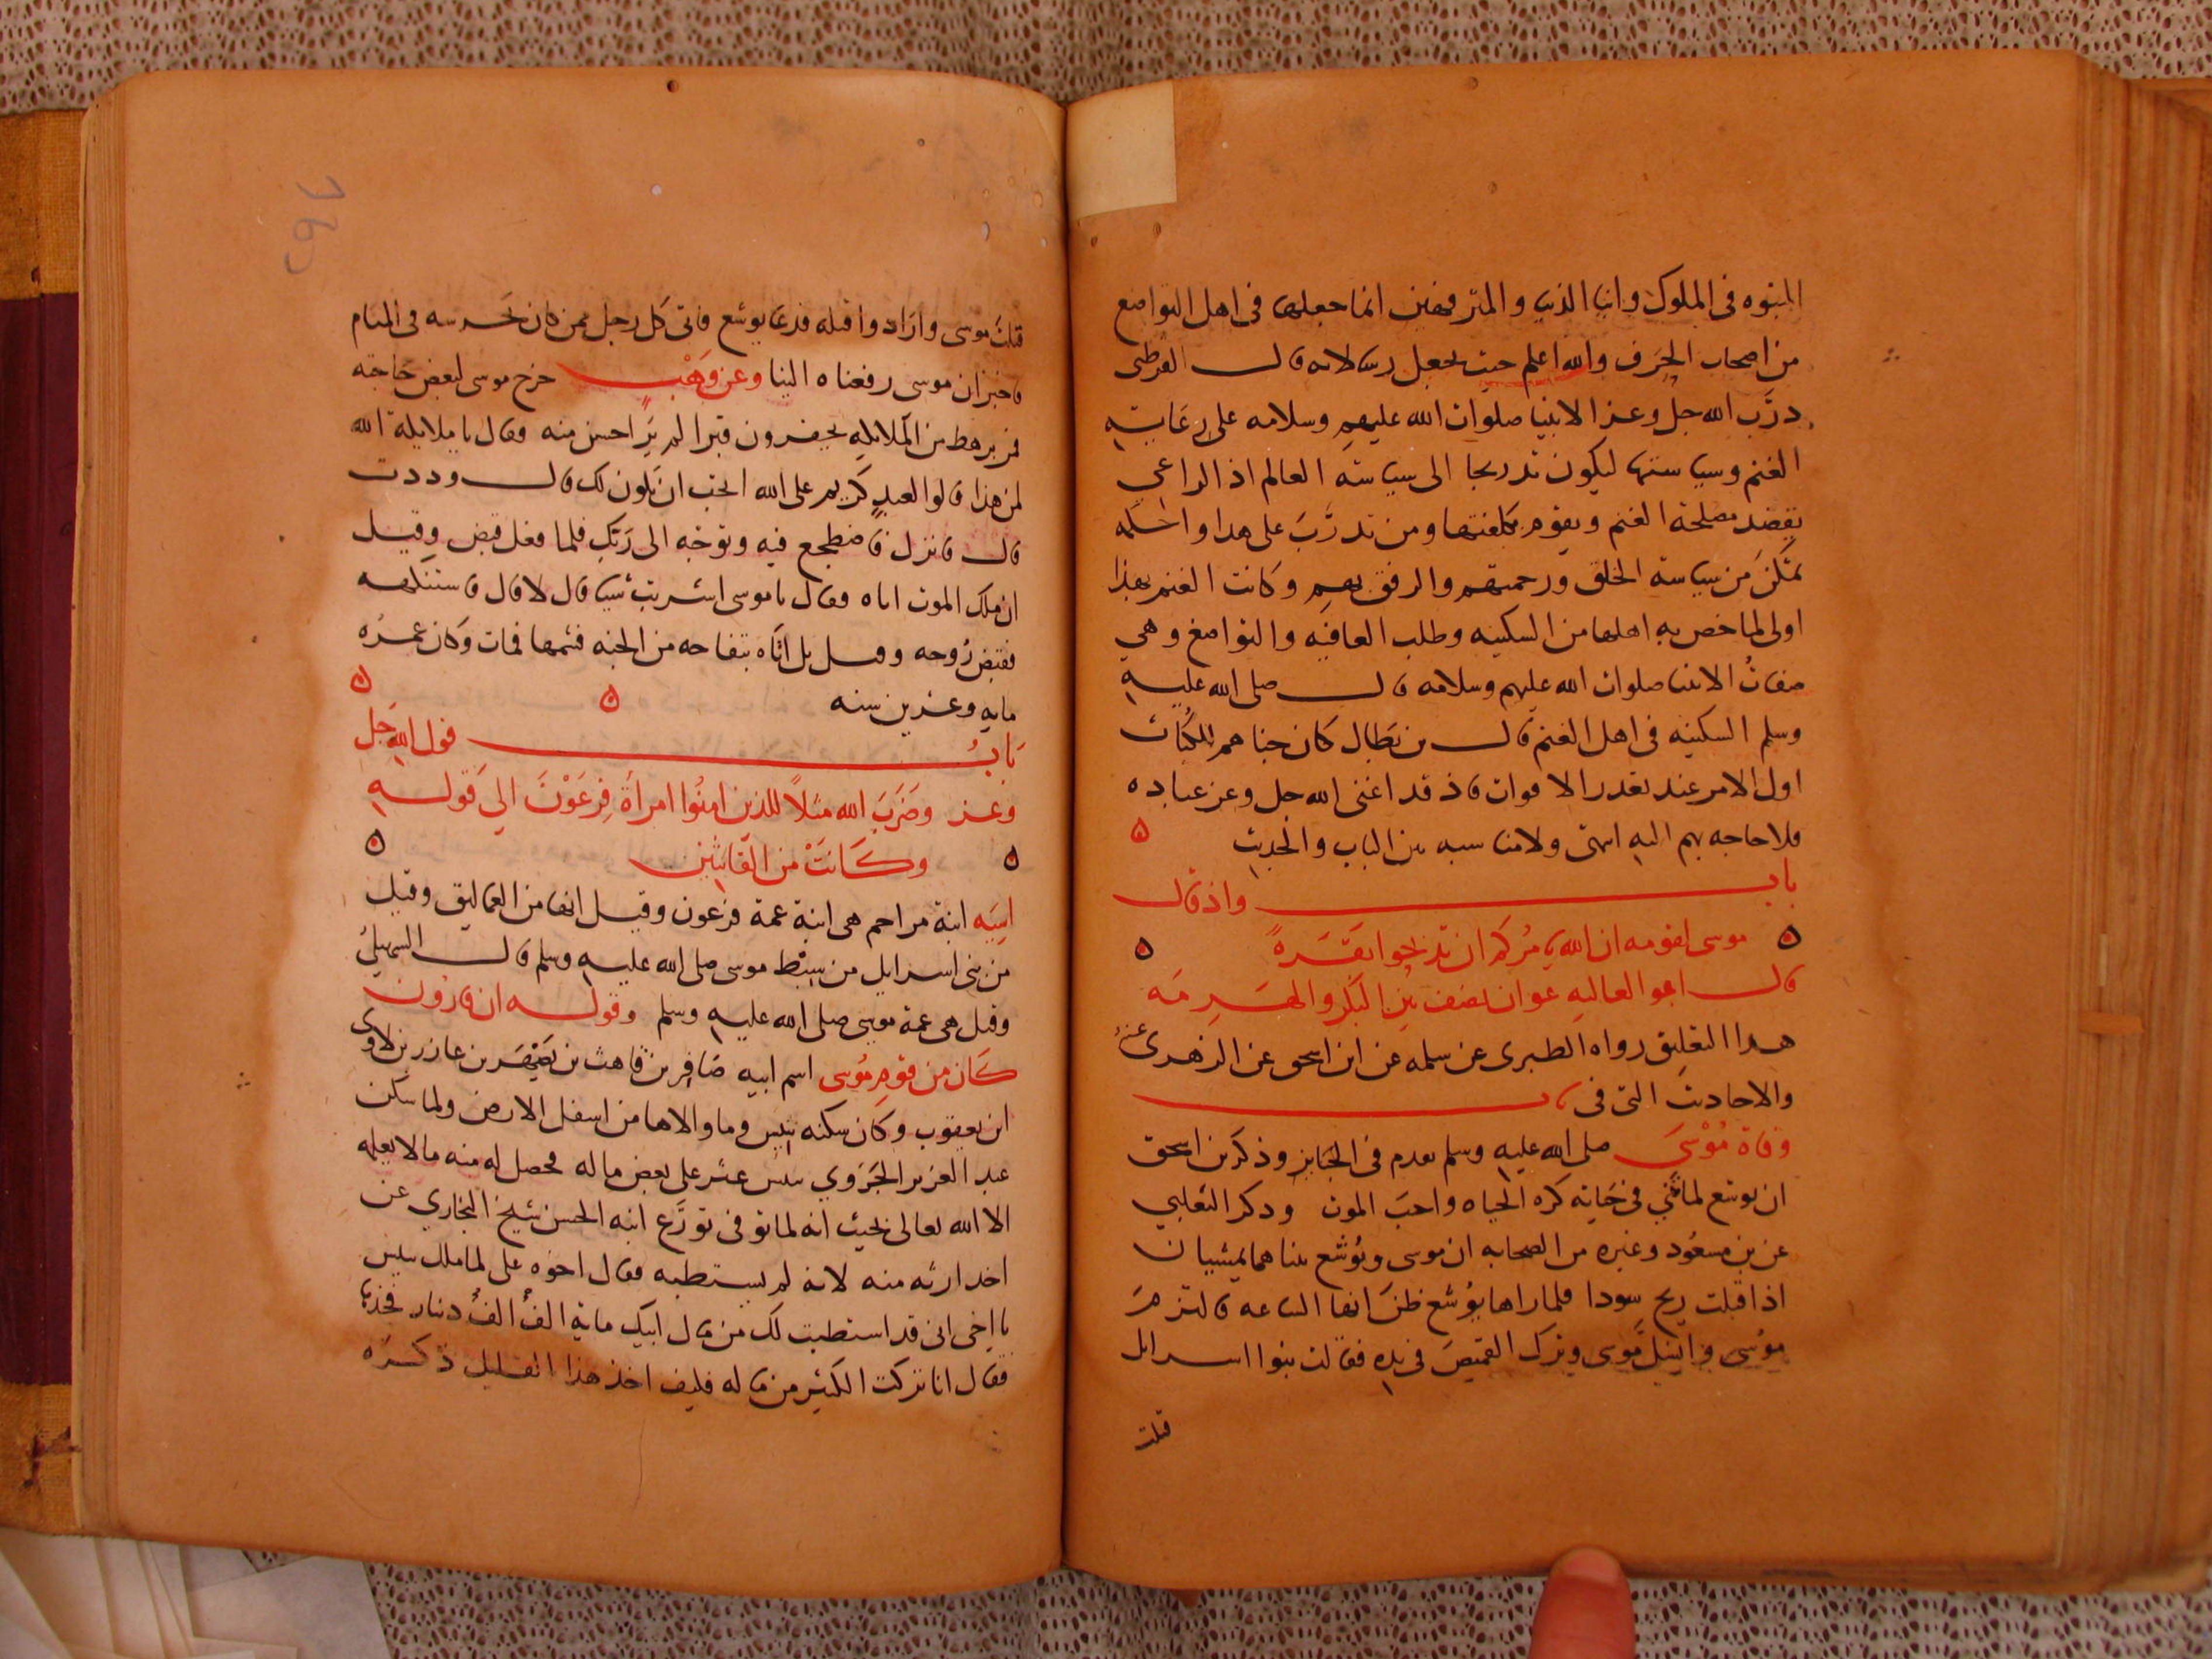 النبوه في الملوك وابنا الدنيا والمترفهين انما جعلها في اهل التواضع
من اصحاب الحِرَف والله اعلم حيث يجعل رسالاته قال القرطبي
درَّب الله جل وعز الانبيا صلوات الله عليهم وسلامه على رعاية
الغنم وسياستها ليكون تدريجا الى سياسة العالم اذ الراعي
يقصد مصلحة الغنم ويقوم بكلفتها ومن تدرَّبَ على هذا واحكمه
تمكَّن من سياسة الخلق ورحمتهم والرفق بهم وكانت الغنم بهذا
اولى لما خص به اهلها من السكينه وطلب العافيه والتواضع وهي
صفاتُ الانبيا صلوات الله عليهم وسلامه قال صلى الله عليه
وسلم السكينه في اهل الغنم قال بن بَطال كان جناهم للكَبَاث
اول الامر عند تعذر الاقوات فاذ قد اغنى الله جل وعز عباده
فلا حاجه بهم اليه انتهى ولا مناسبه بين الباب والحديث ه
باب واذ قال
ه موسى لقومه ان الله يامُركم ان تذبحوا بَقَرةً ه
قال ابو العاليه عوان نصَف بين البكر والهَرِمَه
هذا التعليق رواه الطبري عن سلمه عن ابن اسحق عن الزهري عنهُ
والاحاديث التي في باب
وفاة مُوْسَى صلى الله عليه وسلم تقدم في الجنايز وذكر بن اسحق
ان يوشع لما نُبي في حَياته كره الحياه واحبَ الموت وذكر الثعلبي
عن بن مسعُود وغيره من الصحابه ان موسى ويُوشع بينا هما يمشيان
اذ اقبلت ريح سودا فلما راها يُوشع ظنَ انها الساعه فالتزمَ
مُوسَى فانسلَّ مُوسى وترك القميصَ في يده فقالت بنوا اسرايل
قتلت
قتلتَ موسى وارَادوا قتله فدعَا يوشع فاتى كل رجل ممن كان يَحرسه في المنام
فاخبر ان موسى رفعناه الينا وعن وَهْبٍ خرج موسى لبعض حَاجته
فمر برهط من الملايكه يحفرون قبرا لم يَر احسن منه فقال يا ملايكة الله
لمن هذا قالوا لعبدٍ كريم على الله اتحب ان تكون لك قال وددت
قال فانزل فاضطجع فيه وتوجَه الى رَبّك فلما فعل قبض وقيل
ان ملك الموت اتاه فقال يا موسى اشربت شيا قال لا قال فاستنكهه
فقبض رُوحه وقيل بل اتَاه بتفاحه من الجنه فشمها فمات وكان عمرُه
مايه وعشرين سنه ه ه
بَابُ قول الله جَل
وعز وضَرَبَ الله مثلاً للذين امنُوا امراةَ فِرعَوْنَ الى قَوله
ه وكَانَتْ من القانتين ه
اسِيَه ابنة مزاحم هي ابنة عمة فرعون وقيل انها من العماليق وقيل
من بني اسرايل من سِبْط موسى صلى الله عليه وسلم قال السهيليُ
وقيل هي عمة موسى صلى الله عليه وسلم وقوله ان قارُون
كَان من قومِ مُوسى اسم ابيه صَافِر بن قاهث بن يَصْهَر بن عازر بن لاوى
ابن يعقوب وكان سكنه تنيس وما والاها من اسفل الارض ولما سكن
عبد العزيز الجَرَوي تنيس عثر على بعض ماله فحصل له منه ما لا يعلمه
الا الله تعالى بحيث انه لما توفي تورَّع ابنه الحسن شيخ البخاري عن
اخذ ارثه منه لانه لم يستطبه فقال اخوه على لما ملك تنيس
يا اخي اني قد استطبت لك من مال ابيك ماية الفُ الفُ دينار فخذها
فقال انا تركت الكثير من ماله فكيف اخذ هذا القليل ذكره